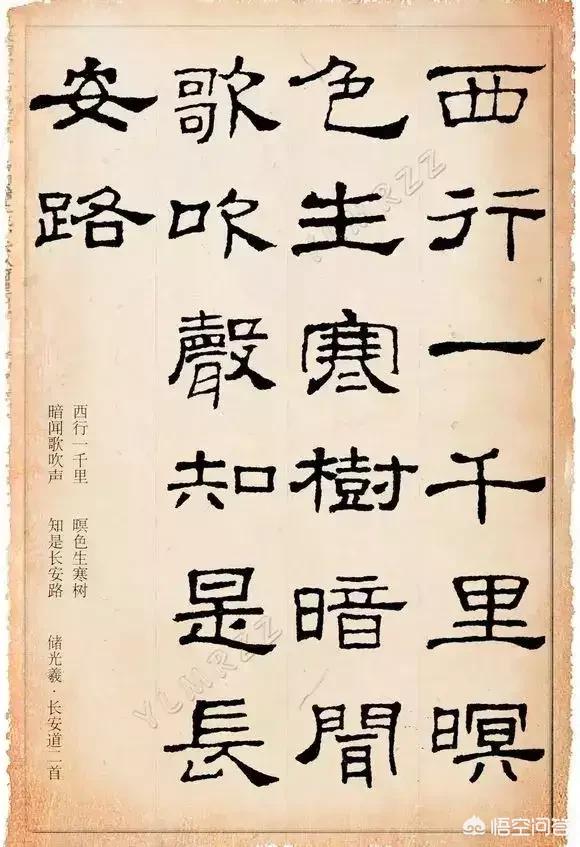 西行一千里暝
色生寒樹暗聞
歌吹聲知是長
安路
西行一千里 暝色生寒树
暗闻歌吹声 知是长安路
储光羲·长安道二首
YLMRZZ
YLMRZZ
悟空问答